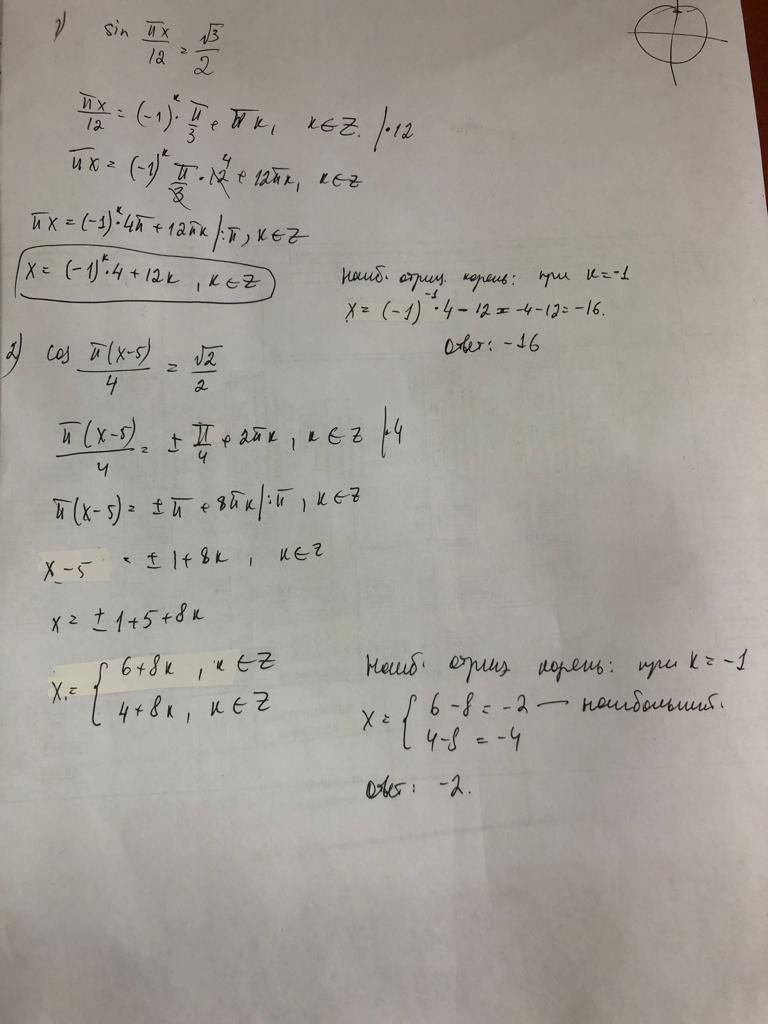 1) sin πx/12 = √3/2
πx/12 = (-1)^k · π/3 + πk, k∈Z. |·12
πx = (-1)^k π/3 · 12 4 + 12πk, k∈Z
πx = (-1)^k · 4π + 12πk |:π, k∈Z
x = (-1)^k · 4 + 12k , k∈Z
Наиб. отриц. корень: при k=-1
x = (-1)^-1 · 4 - 12 = -4-12 = -16.
Ответ: -16
2) cos π(x-5)/4 = √2/2
π(x-5)/4 = ± π/4 + 2πk, k∈Z |·4
π(x-5) = ±π + 8πk |:π, k∈Z
x-5 = ±1+8k , k∈Z
x = ±1+5+8k
x = { 6+8k , k∈Z
4+8k, k∈Z
Наиб. отриц корень: при k=-1
x = { 6-8 = -2 — наибольший.
4-8 = -4
Ответ: -2.